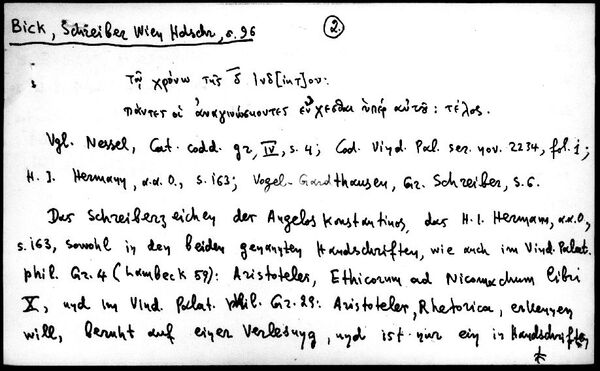 Bick, Schreiber Wien Hdschr, s. 96
2.
τῷ χρόνῳ τῆς δ̅ ἰνδ[ικτ]ου:
πάντες οἱ ἀναγινώσκοντες εὔχεσθαι ὑπὲρ αὐτοῦ: τέλος.
Vgl. Nessel, Cat. codd. gr, IV, s. 4; Cod. Vind. Pal. ser. nov. 2234, fol. 1;
H. J. Hermann, a.a.O., S. 163; Vogel-Gardthausen, Gr. Schreiber, S. 6.
Das Schreiberzeichen der Angelos Konstantinos, das H. J. Hermann, a.a.O.,
S. 163, sowohl in den beiden genannten Handschriften, wie auch im Vind. Palat.
phil. Gr. 4 (Lambeck 59): Aristoteles, Ethicorum ad Nicomachum libri
X, und im Vind. Palat. phil. Gr. 29: Aristoteles, Rhetorica, erkennen
will, beruht auf einer Verlesung, und ist nur ein in Handschriften